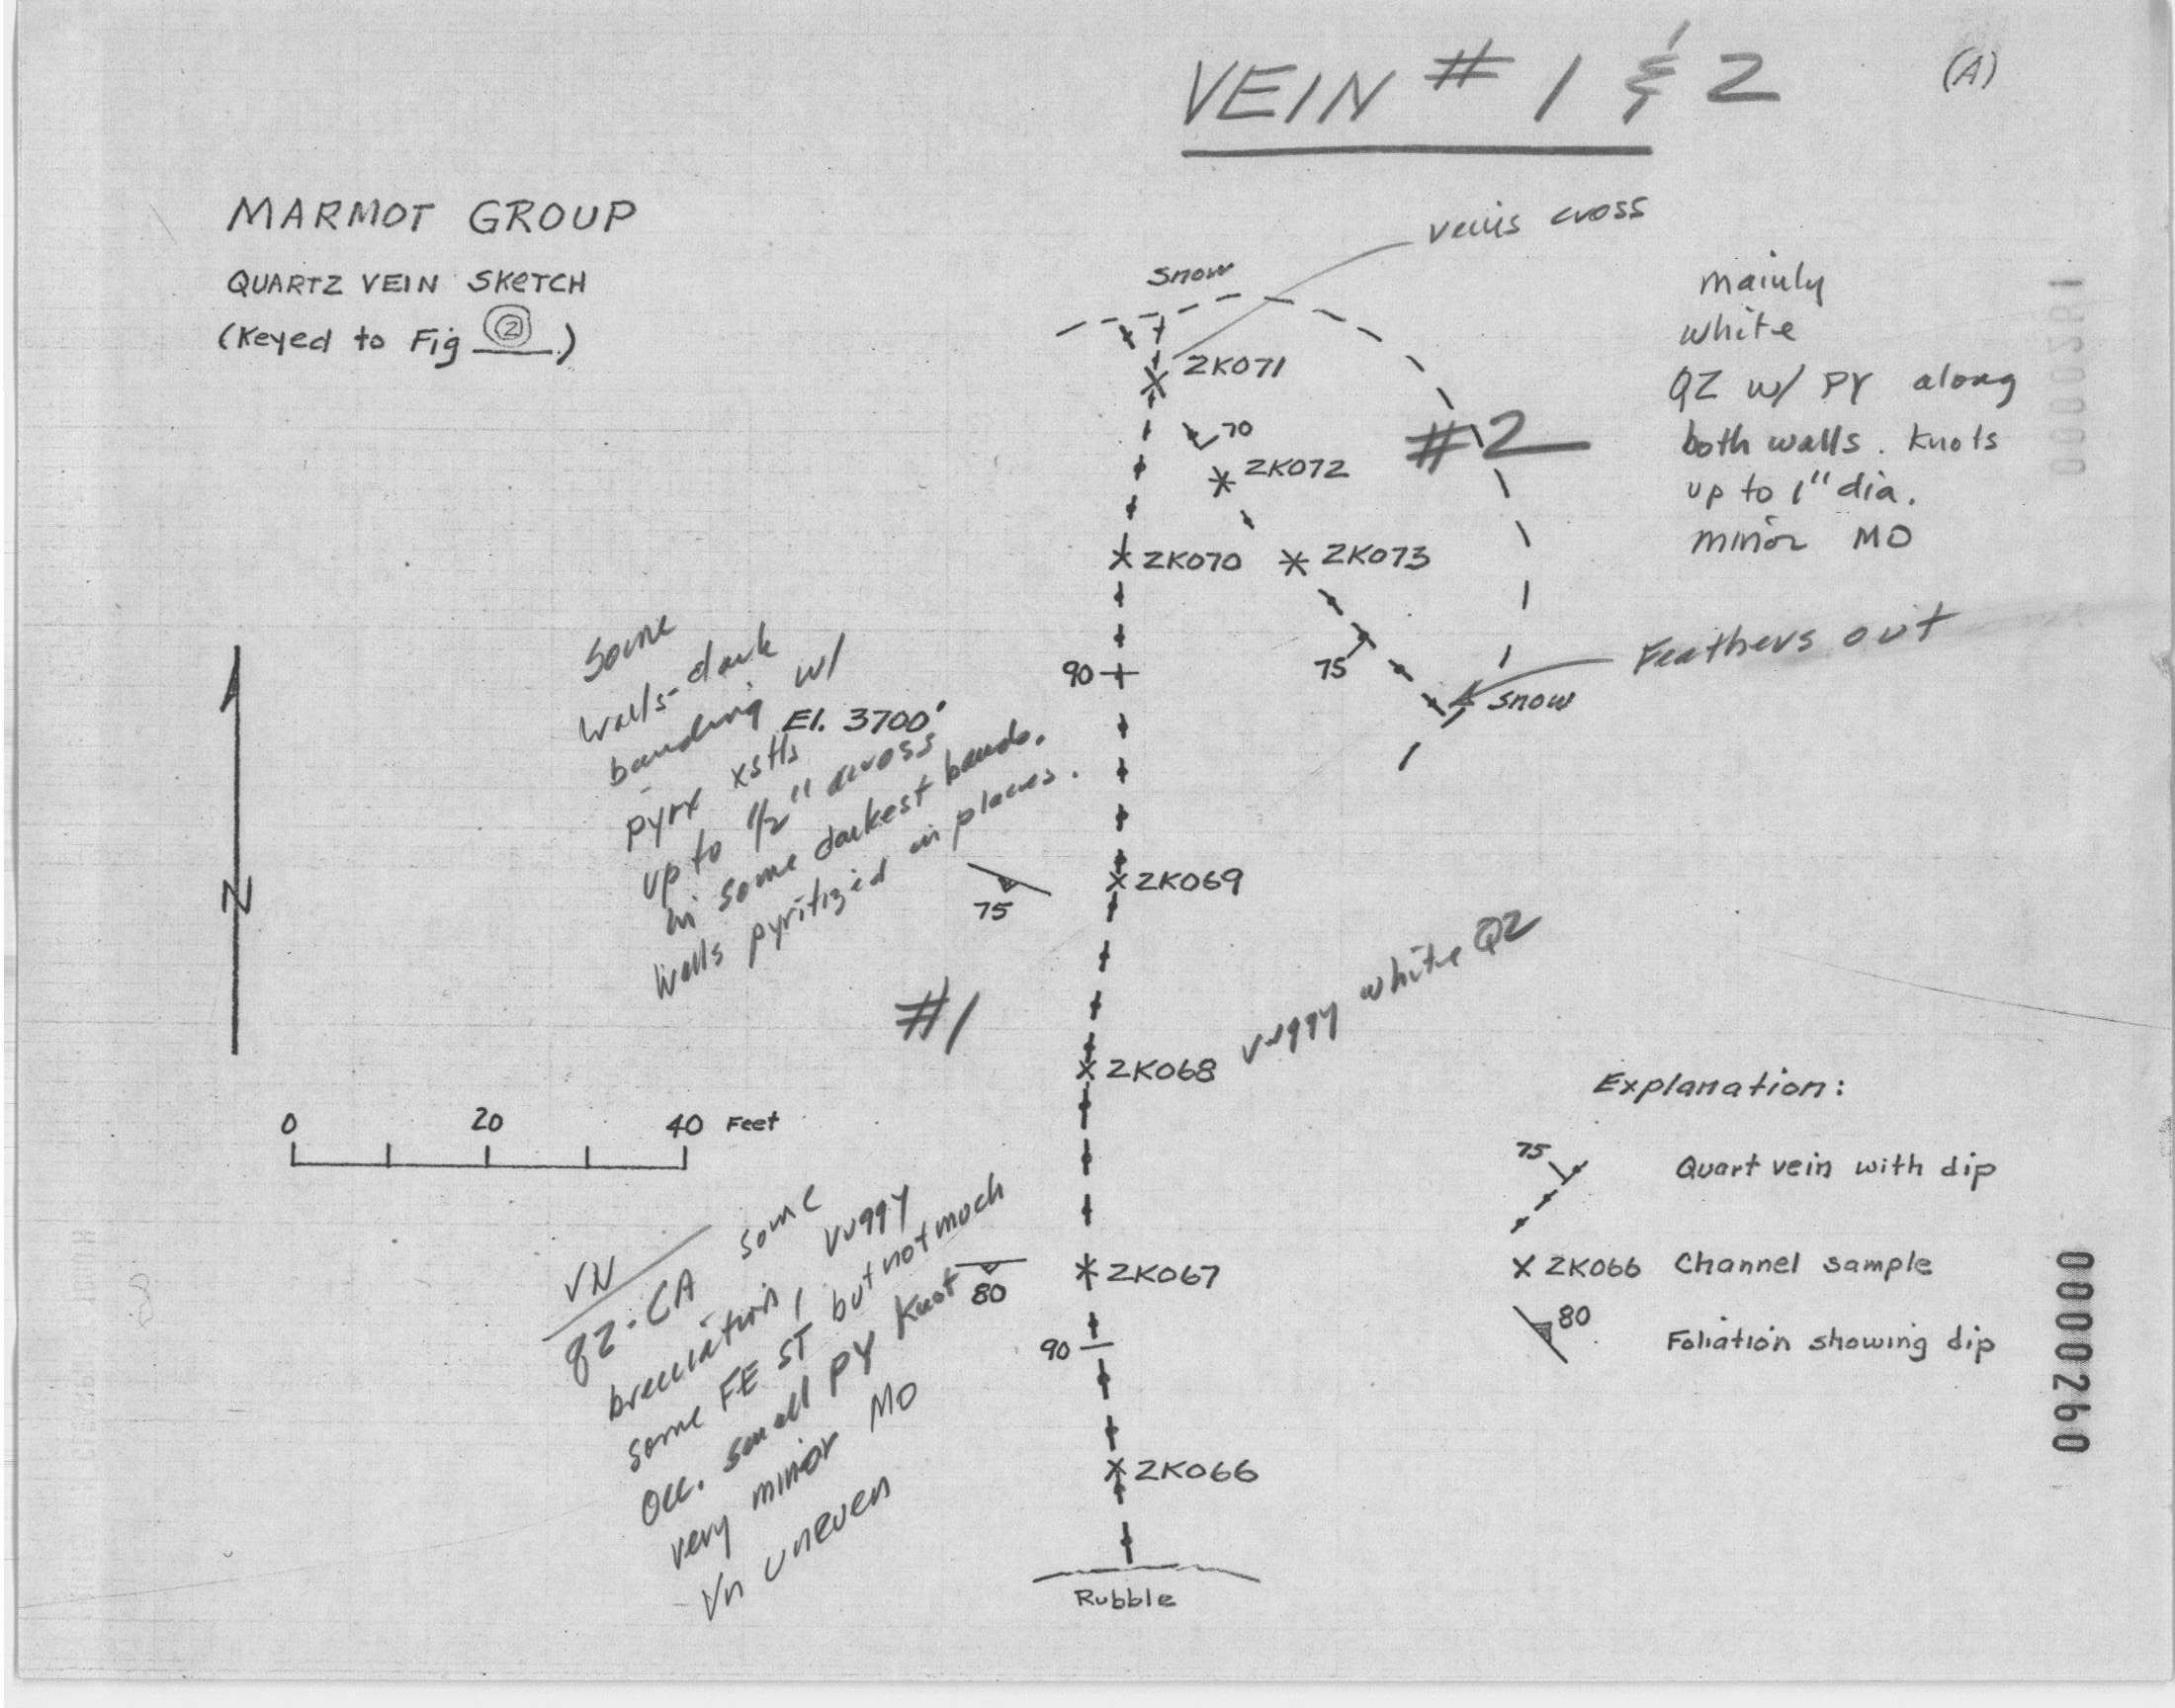 VEIN # 1 & 2
(A)
MARMOT GROUP
QUARTZ VEIN SKETCH
(Keyed to Fig 2.)
veins cross
snow
ZK071
70
ZK072
#2
ZK070
ZK073
75
90
snow
Feathers out
mainly
white
QZ w/ PY along
both walls. Knots
up to 1" dia.
minor MO
Some
walls-dark
banding w/
El. 3700'
pyrx xstls
up to 1/2" across
in some darkest bands.
walls pyritized in places.
75
ZK069
#1
N
ZK068
vuggy white QZ
0 20 40 Feet
VN
qz-CA some
brecciation, vuggy
some FE ST but not much
occ. small PY knot
very minor MO
Vn uneven
80
ZK067
90
ZK066
Rubble
Explanation:
75 Quart vein with dip
X ZK066 Channel sample
80 Foliation showing dip
0000260